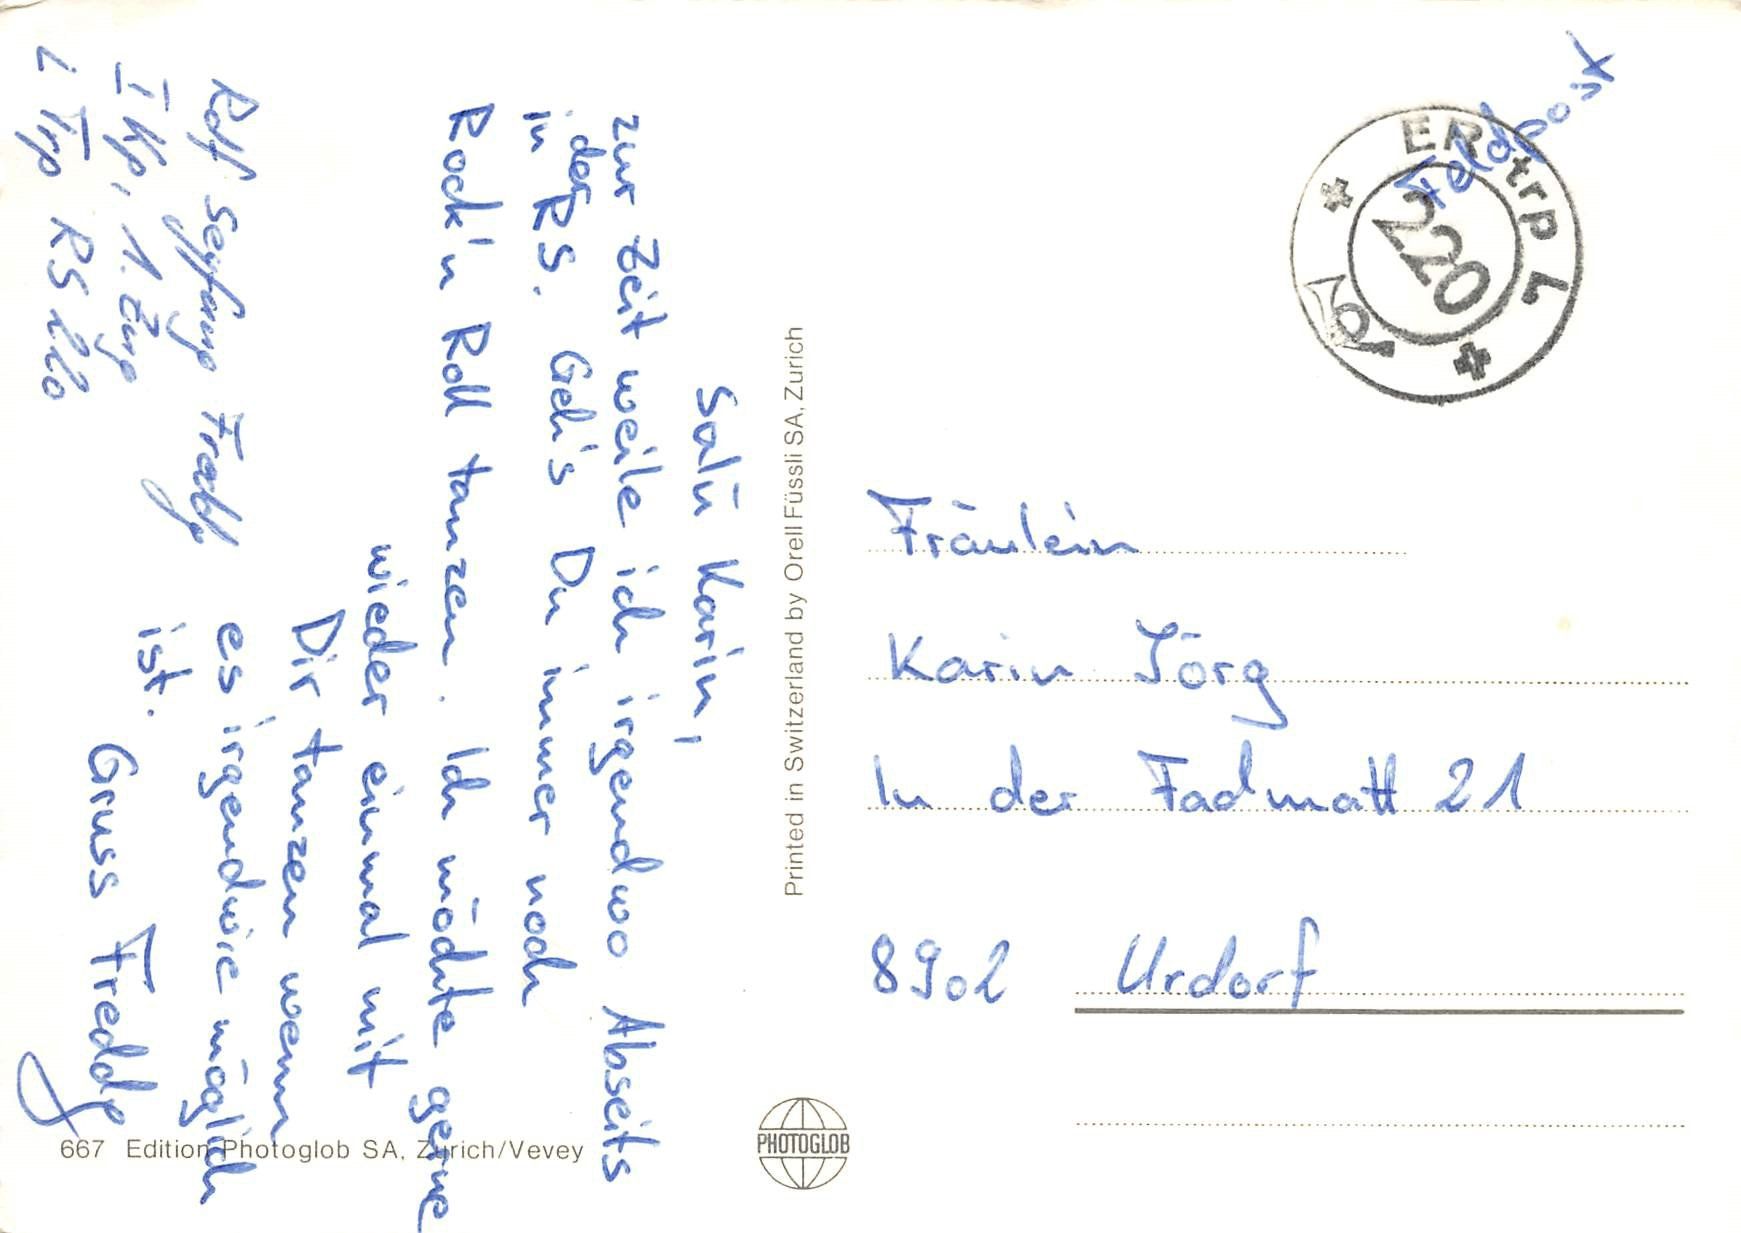 Salü Karin,
zur Zeit weile ich irgendwo Abseits
in der RS. Geh's Du immer noch
Rock'n Roll tanzen. Ich möchte gerne
wieder einmal mit
Dir tanzen wenn
es irgendwie möglich
ist.
Gruss Freddy
Rolf Freddy
I Kp, 1. Zug
L Trp RS 220
Printed in Switzerland by Orell Füssli SA, Zurich
Feldpost
ER trp L
220
Fräulein
Karin Jörg
In der Fadmatt 21
8902 Urdorf
667 Edition Photoglob SA, Zürich/Vevey
PHOTOGLOB